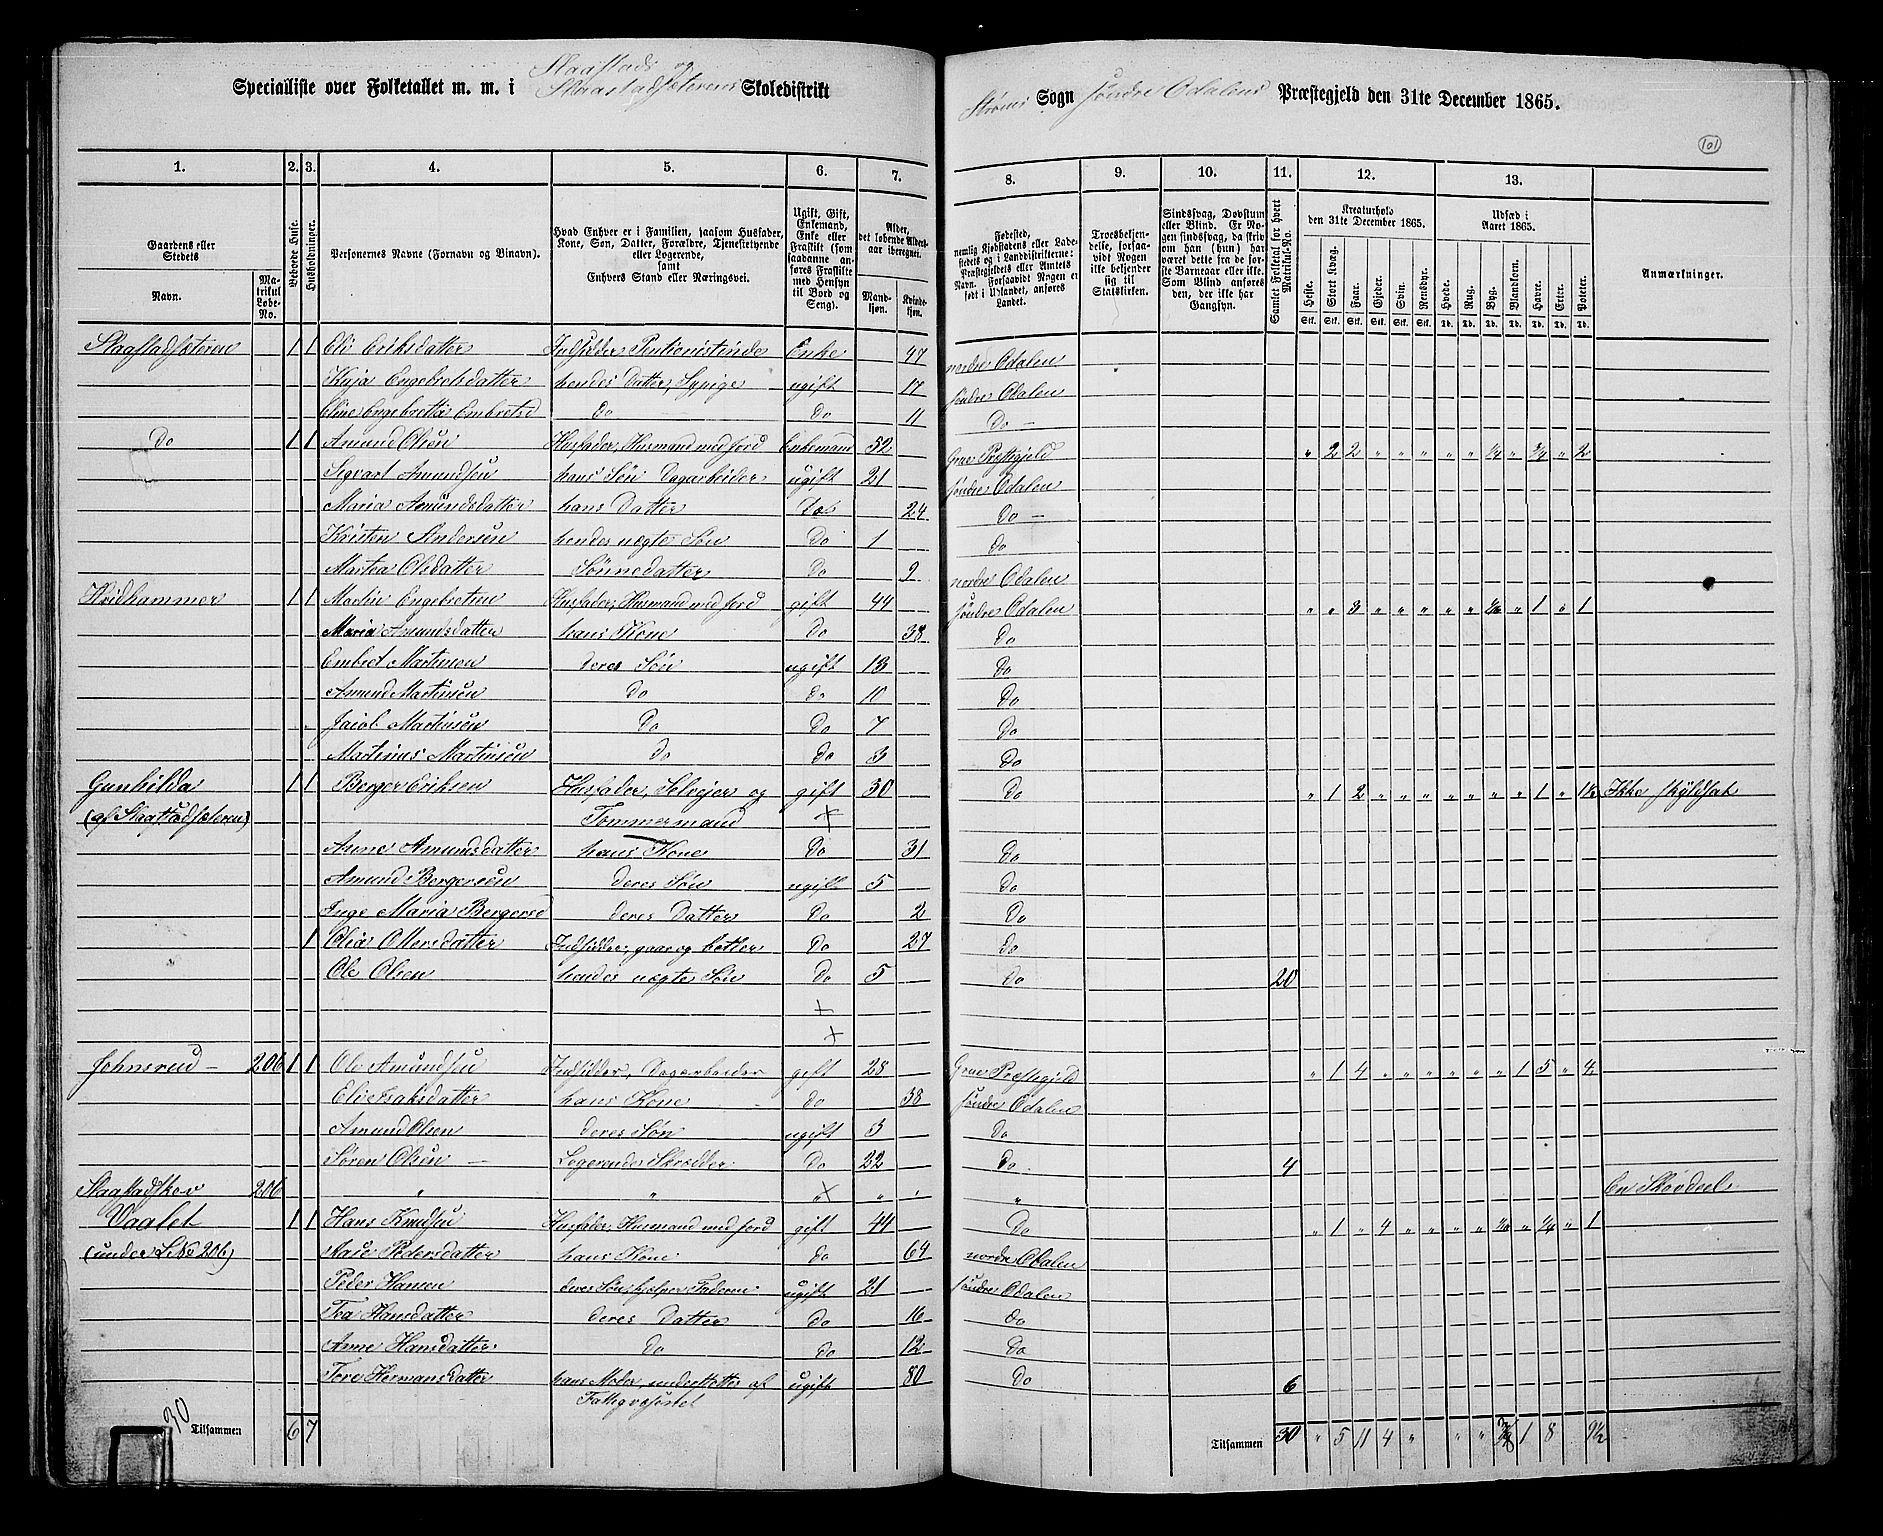 Specialliste over Folketallet m. m. i Slaastads og Slaastadsæterens Skoledistrikt
Strøms Sogn søndre Odalens Præstegjeld den 31te December 1865.
101
1. 2. 3. 4. 5. 6. 7. 8. 9. 10. 11. 12. 13.
Gaardens eller Stedets
Navn.
Matrikul Løbe-No.
Beboede Huse.
Husholdninger.
Personernes Navne (Fornavn og Binavn).
Hvad Enhver er i Familien, saasom Husfader, Kone, Søn, Datter, Forældre, Tjenestetyende eller Logerende, samt Enhvers Stand eller Næringsvei.
Ugift, Gift, Enkemand, Enke eller Fraskilt (som saadanne anføres Fraskilte med Hensyn til Bord og Seng).
Alder, det løbende Aldersaar iberegnet.
Mandkjøn.
Kvindekjøn.
Fødested, nemlig Kjøbstadens eller Ladestedets og i Landdistrikterne: Præstegjeldets eller Amtets Navn. Forsaavidt Nogen er født i Udlandet, anføres Landet.
Troesbekjendelse, forsaavidt Nogen ikke bekjender sig til Statskirken.
Sindssvag, Døvstum eller Blind. Er Nogen sindssvag, da skriv om han (hun) har været dette fra de første Barneaar eller ikke. Som Blind anføres den, der ikke har Gangsyn.
Samlet Folketal for hvert Matrikul-No.
Kreaturhold den 31te December 1865.
Heste. Stort Kvæg. Faar. Gjeder. Svin. Rensdyr.
Udsæd i Aaret 1865.
Hvede. Rug. Byg. Blandkorn. Havre. Erter. Poteter.
Anmærkninger.
Stk. Stk. Stk. Stk. Stk. Stk. Td. Td. Td. Td. Td. Td. Td.
Slaastadsæteren 1 1 Eli Eriksdatter Indsidder Enke 47 nordre Odalen
Kaja Engebretsdatter hendes Datter, Sypige ugift 17 søndre Odalen
Eline Engebretta Embretsd Do Do 11 Do
Do 1 1 Amund Olsen Husfader, Husmand med Jord Enkemand 52 Grue Præstegjeld " 2 2 " " " " " ¼ " ¾ " 2
Segvart Amundsen hans Søn Dagarbeider ugift 21 søndre Odalen
Maria Amundsdatter hans Datter Do 24 Do
Kristen Andersen hendes uægte Søn Do 1 Do
Martea Olsdatter Sønnedatter Do 9 nordre Odalen
Hvidhammer 1 1 Martin Engebretsen Husfader, Husmand med Jord gift 44 søndre Odalen " " 3 " " " " " " 1 " 1
Maria Amundsdatter hans Kone Do 38 Do
Embret Martinsen deres Søn ugift 13 Do
Amund Martinsen Do Do 10 Do
Jacob Martinsen Do Do 7 Do
Martinus Martinsen Do Do 3 Do
Gunhilda 1 1 Berger Eriksen Husfader, Selveier og gift 30 Do " 1 2 " " " " " " " 1 " 1½ Ikke skyldsat
(af Slaastadsæteren) Tømmermand +
Anne Amundsdatter hans Kone Do 31 Do
Amund Bergersen deres Søn ugift 5 Do
Inge Maria Bergersd deres Datter Do 2 Do
1 Olia Olersdatter Indsidder, gaar og betler Do 27 Do
Ole Olsen hendes uægte Søn Do 5 Do 20
+
+
Johnsrud 206 1 1 Ole Amundsen Indsidder, Dagarbeider gift 28 Grue Præstegjeld " 1 4 " " " " " " 1 5 " 4
Eli Isaksdatter hans Kone Do 38 søndre Odalen
Amund Olsen deres Søn ugift 3 Do
Søren Olsen Logerende Skrædder Do 22 Do 4
Slaastadskov 206 " " + " " " En Skovdeel
Vaalet 1 1 Hans Knudsen Husfader, Husmand med Jord gift 44 Do " 1 " 4 " " " " " " 1
(under L No 206) Mari Pedersdatter hans Kone Do 64 nordre Odalen
Peder Hansen deres Søn, hjelper Faderen ugift 21 søndre Odalen
Eva Hansdatter deres Datter Do 16 Do
Anne Hansdatter Do Do 12 Do
Tore Hermansdatter hans Moder, understøttes af ugift 80 Do 6
Fattigvæsenet
30 Tilsammen 6 7
Tilsammen 30 " 5 11 4 " " " 1 8 9½